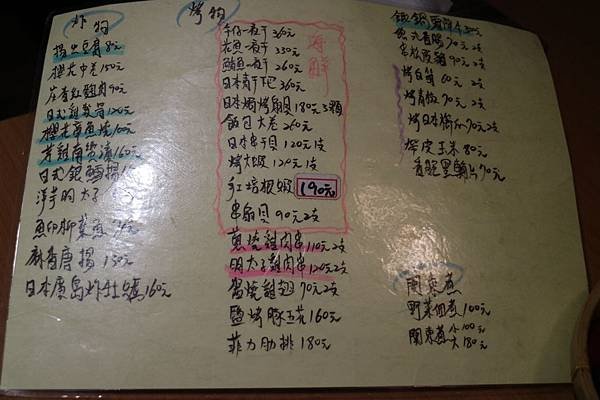 炸物
揚出豆腐80元
櫻花中卷150元
紅麴肉90元
日式雞軟骨120元
櫻花章魚燒100元
芽雞南蠻漬160元
日式銀鱈揚
洋芋明太子
魚卵柳葉魚
唐揚150元
日本廣島炸牡蠣160元
烤物
海鮮
一夜干360元
花魚一夜干330元
鯖魚一夜干260元
日本青干下巴360元
日本燭烤扇貝180元2顆
飽包大卷260元
日本串干貝120元1支
烤大蝦120元1支
紅培根蝦190元
串扇貝90元2支
蔥燒雞肉串110元2支
明太子雞肉串120元2支
鹽燒雞翅70元2支
鹽烤豚五花160元
菲力肋排180元
70元2支
松阪豬90元2支
烤白蝦60元2支
烤青椒70元2支
烤日本70元2支
玉米80元
香脆黑輪片70元
関東煮
野菜佃煮100元
関東煮小100元大180元